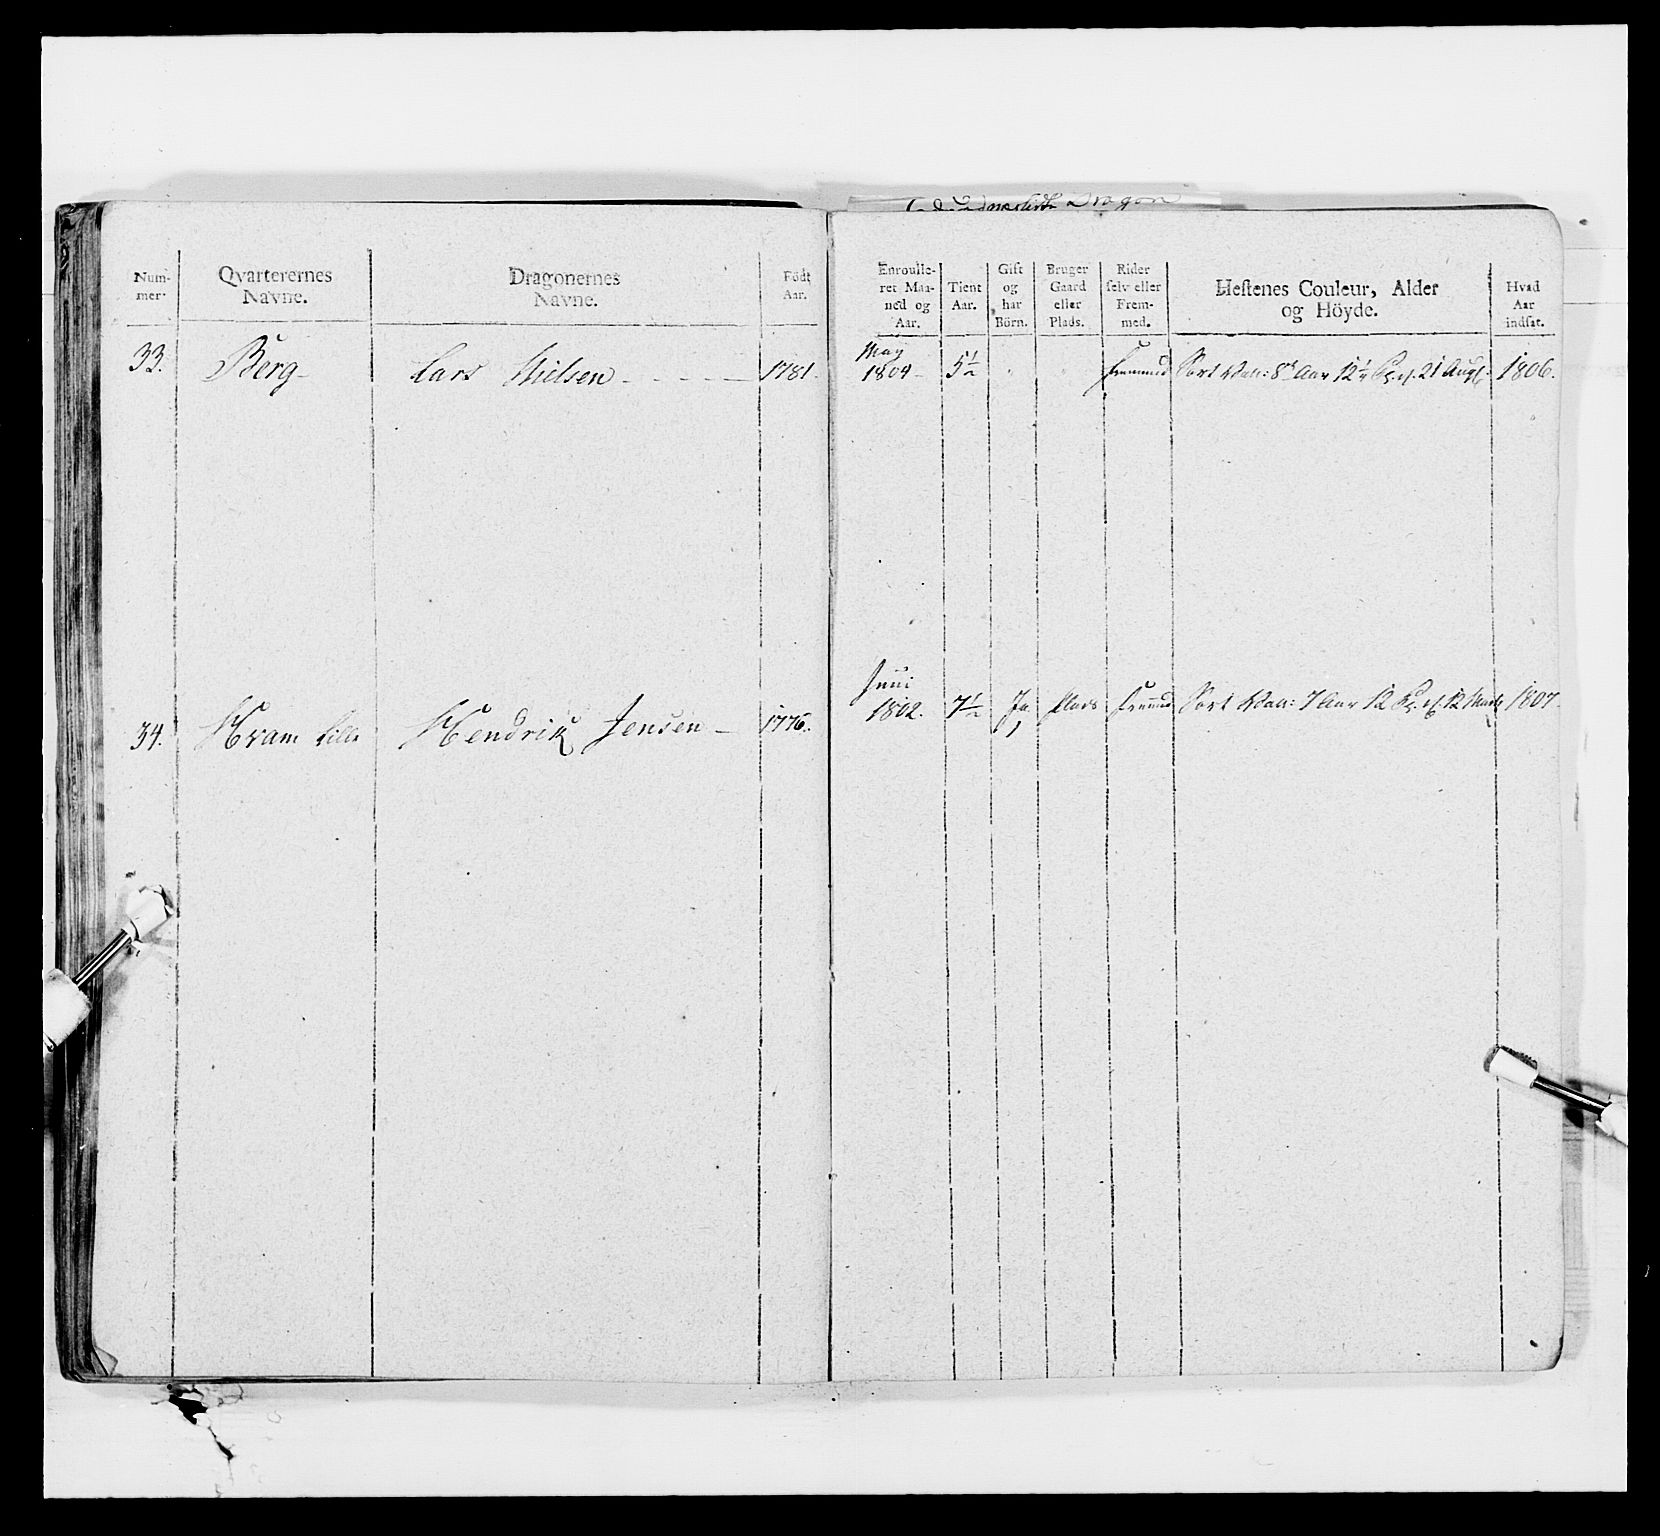 Dragon
Num-
mer.
Qvarterernes
Navne.
Dragonernes
Navne.
Födt
Aar.
Enroulle-
ret Maa-
ned og
Aar.
Tient
Aar.
Gift
og
har
Börn.
Bruger
Gaard
eller
Plads.
Rider
selv eller
Frem-
med.
Hestenes Couleur, Alder
og Höyde.
Hvad
Aar
indsat.
33. Berg Lars Nielsen 1781.
May
1804 5½ " " Fremmed Sort Val: 8t Aar 12½ 21 Aug 1806.
34. Hvam Lille Hendrik Jensen 1776.
Juni
1802. 7½ Ja Plads Fremmed Sort Val: 7 Aar 12 12 Marts 1807.